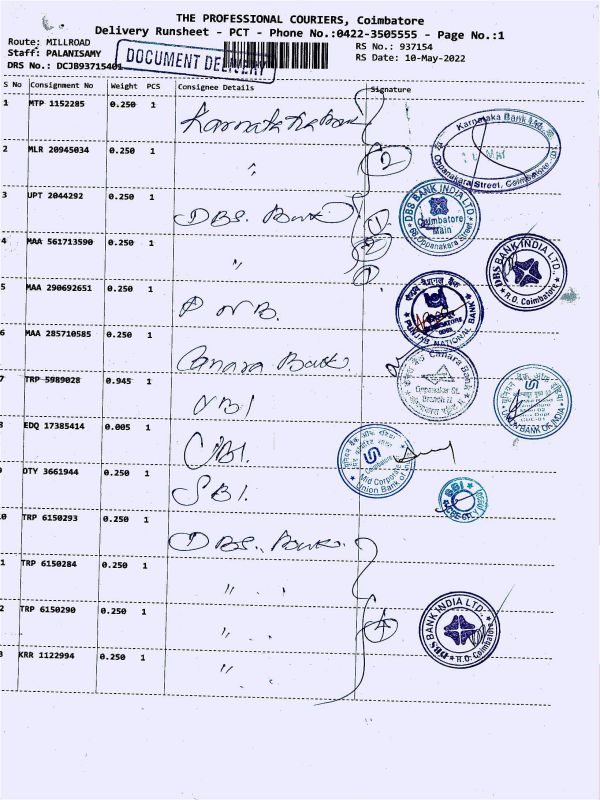 THE PROFESSIONAL COURIERS, Coimbatore
Delivery Runsheet - PCT - Phone No.:0422-3505555 - Page No.:1
Route: MILLROAD
Staff: PALANISAMY
DRS No.: DCJB93715401
DOCUMENT DELIVERY
RS No.: 937154
RS Date: 10-May-2022
S No Consignment No Weight PCS Consignee Details Signature
1 MTP 1152285 0.250 1 Karnataka Bank
Karnataka Bank Ltd.
Oppanakara Street, Coimbatore.
2 MLR 20945034 0.250 1 "
2
3 UPT 2044292 0.250 1 DBS. Bank
1
DBS BANK INDIA LTD.
Coimbatore
Main
Oppanakara Street
4 MAA 561713590 0.250 1 "
DBS BANK INDIA LTD.
R.O. Coimbatore
5 MAA 290692651 0.250 1 PNB.
पंजाब नैशनल बैंक
PUNJAB NATIONAL BANK
6 MAA 285710585 0.250 1 Canara Bank
Canara Bank
Oppanakar St.
Branch
7 TRP 5989028 0.945 1 UBI
BANK OF INDIA
8 EDQ 17385414 0.005 1 UBI.
Coimbatore
Mid Corporate
Union Bank of
9 OTY 3661944 0.250 1 SBI.
SBI
0 TRP 6150293 0.250 1 DBS. Bank.
1 TRP 6150284 0.250 1 "
2 TRP 6150290 0.250 1 "
4
DBS BANK INDIA LTD.
R.O. Coimbatore
3 KRR 1122994 0.250 1 "